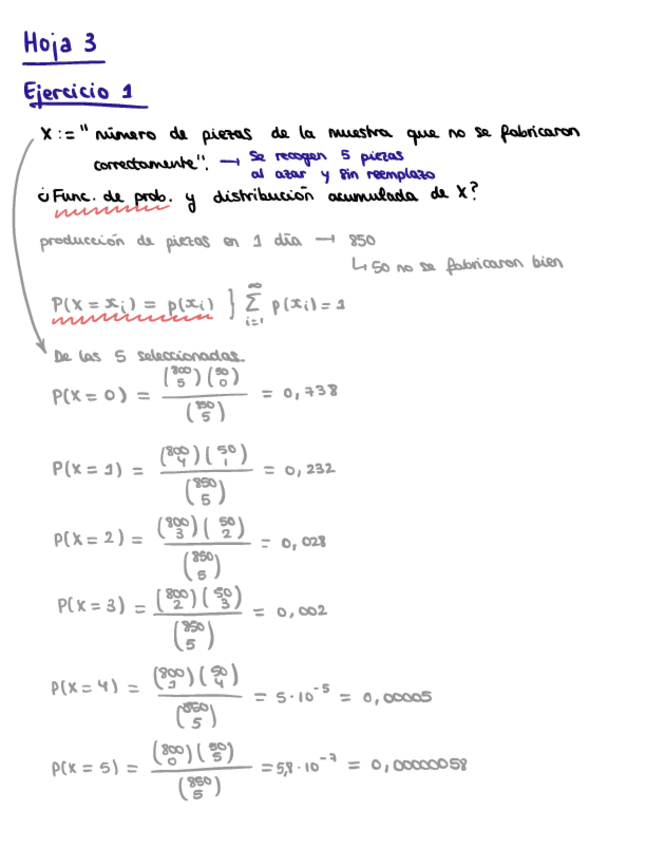 Hoja 3
Ejercicio 1
X := "número de piezas de la muestra que no se fabricaron
correctamente". → Se recogen 5 piezas
al azar y sin reemplazo
¿Func. de prob. y distribución acumulada de X?
producción de piezas en 1 día → 850
↳ 50 no se fabricaron bien
P(X = xᵢ) = p(xᵢ) } ∑_{i=1}^{∞} p(xᵢ) = 1
De las 5 seleccionadas.
P(X = 0) = \frac{\binom{800}{5}\binom{50}{0}}{\binom{850}{5}} = 0,738
P(X = 1) = \frac{\binom{800}{4}\binom{50}{1}}{\binom{850}{5}} = 0,232
P(X = 2) = \frac{\binom{800}{3}\binom{50}{2}}{\binom{850}{5}} = 0,028
P(X = 3) = \frac{\binom{800}{2}\binom{50}{3}}{\binom{850}{5}} = 0,002
P(X = 4) = \frac{\binom{800}{1}\binom{50}{4}}{\binom{850}{5}} = 5·10⁻⁵ = 0,00005
P(X = 5) = \frac{\binom{800}{0}\binom{50}{5}}{\binom{850}{5}} = 5,8·10⁻⁷ = 0,00000058